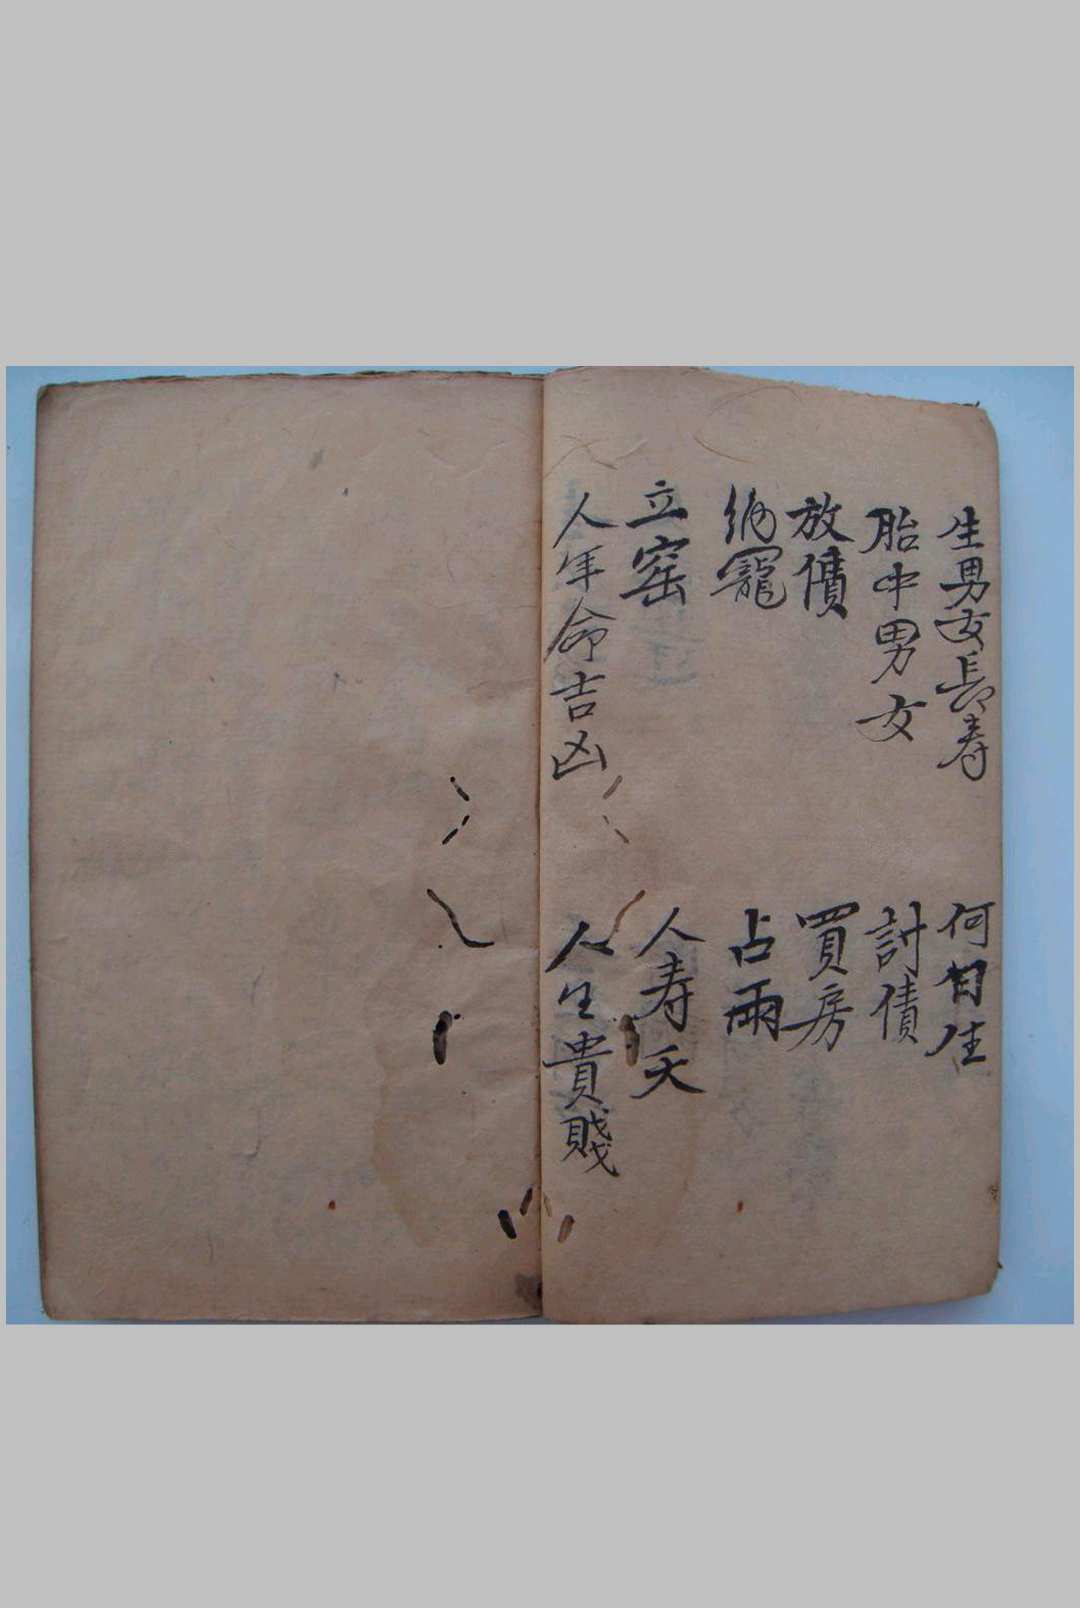 生男女長寿
胎中男女
放債
納寵
立窑
人年命吉凶
何日生
討債
買房
占雨
人寿夭
人生貴賤